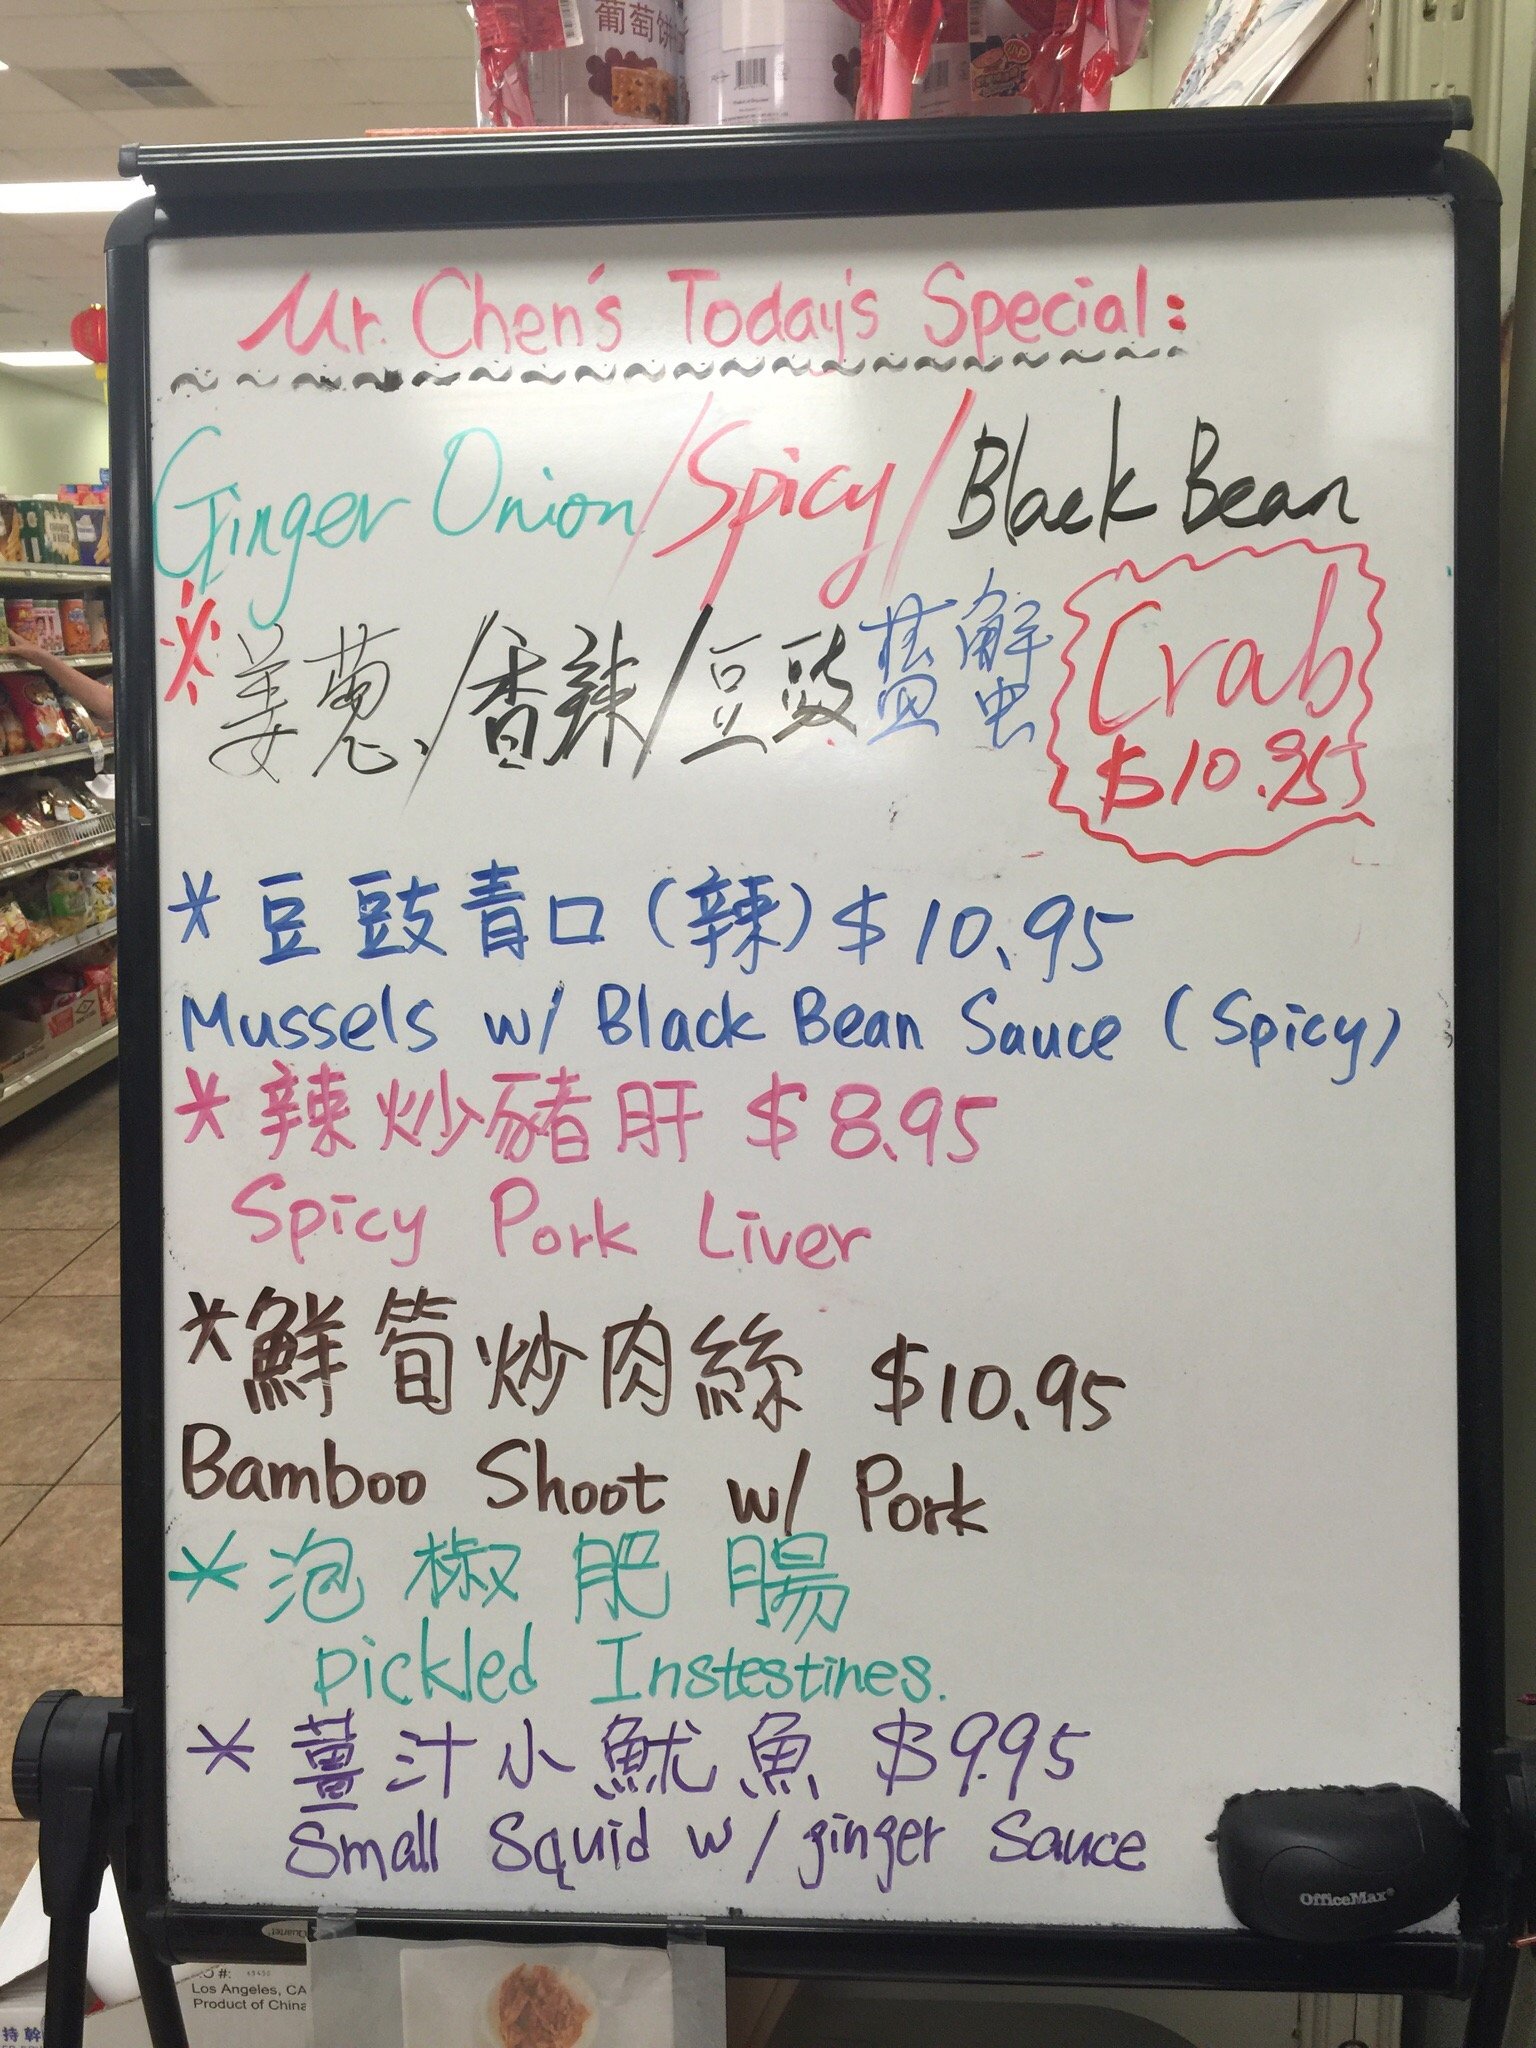 葡萄饼
Mr. Chen's Today's Special:
Ginger Onion/Spicy/Black Bean
※ 姜蔥/香辣/豆豉 藍蟹 Crab
$10.95
* 豆豉青口(辣) $10.95
Mussels w/ Black Bean Sauce (Spicy)
* 辣炒豬肝 $8.95
Spicy Pork Liver
* 鮮筍炒肉絲 $10.95
Bamboo Shoot w/ Pork
* 泡椒肥腸
Pickled Instestines.
* 薑汁小魷魚 $9.95
Small Squid w/ ginger Sauce
OfficeMax®
Quartet
Los Angeles, CA
Product of China